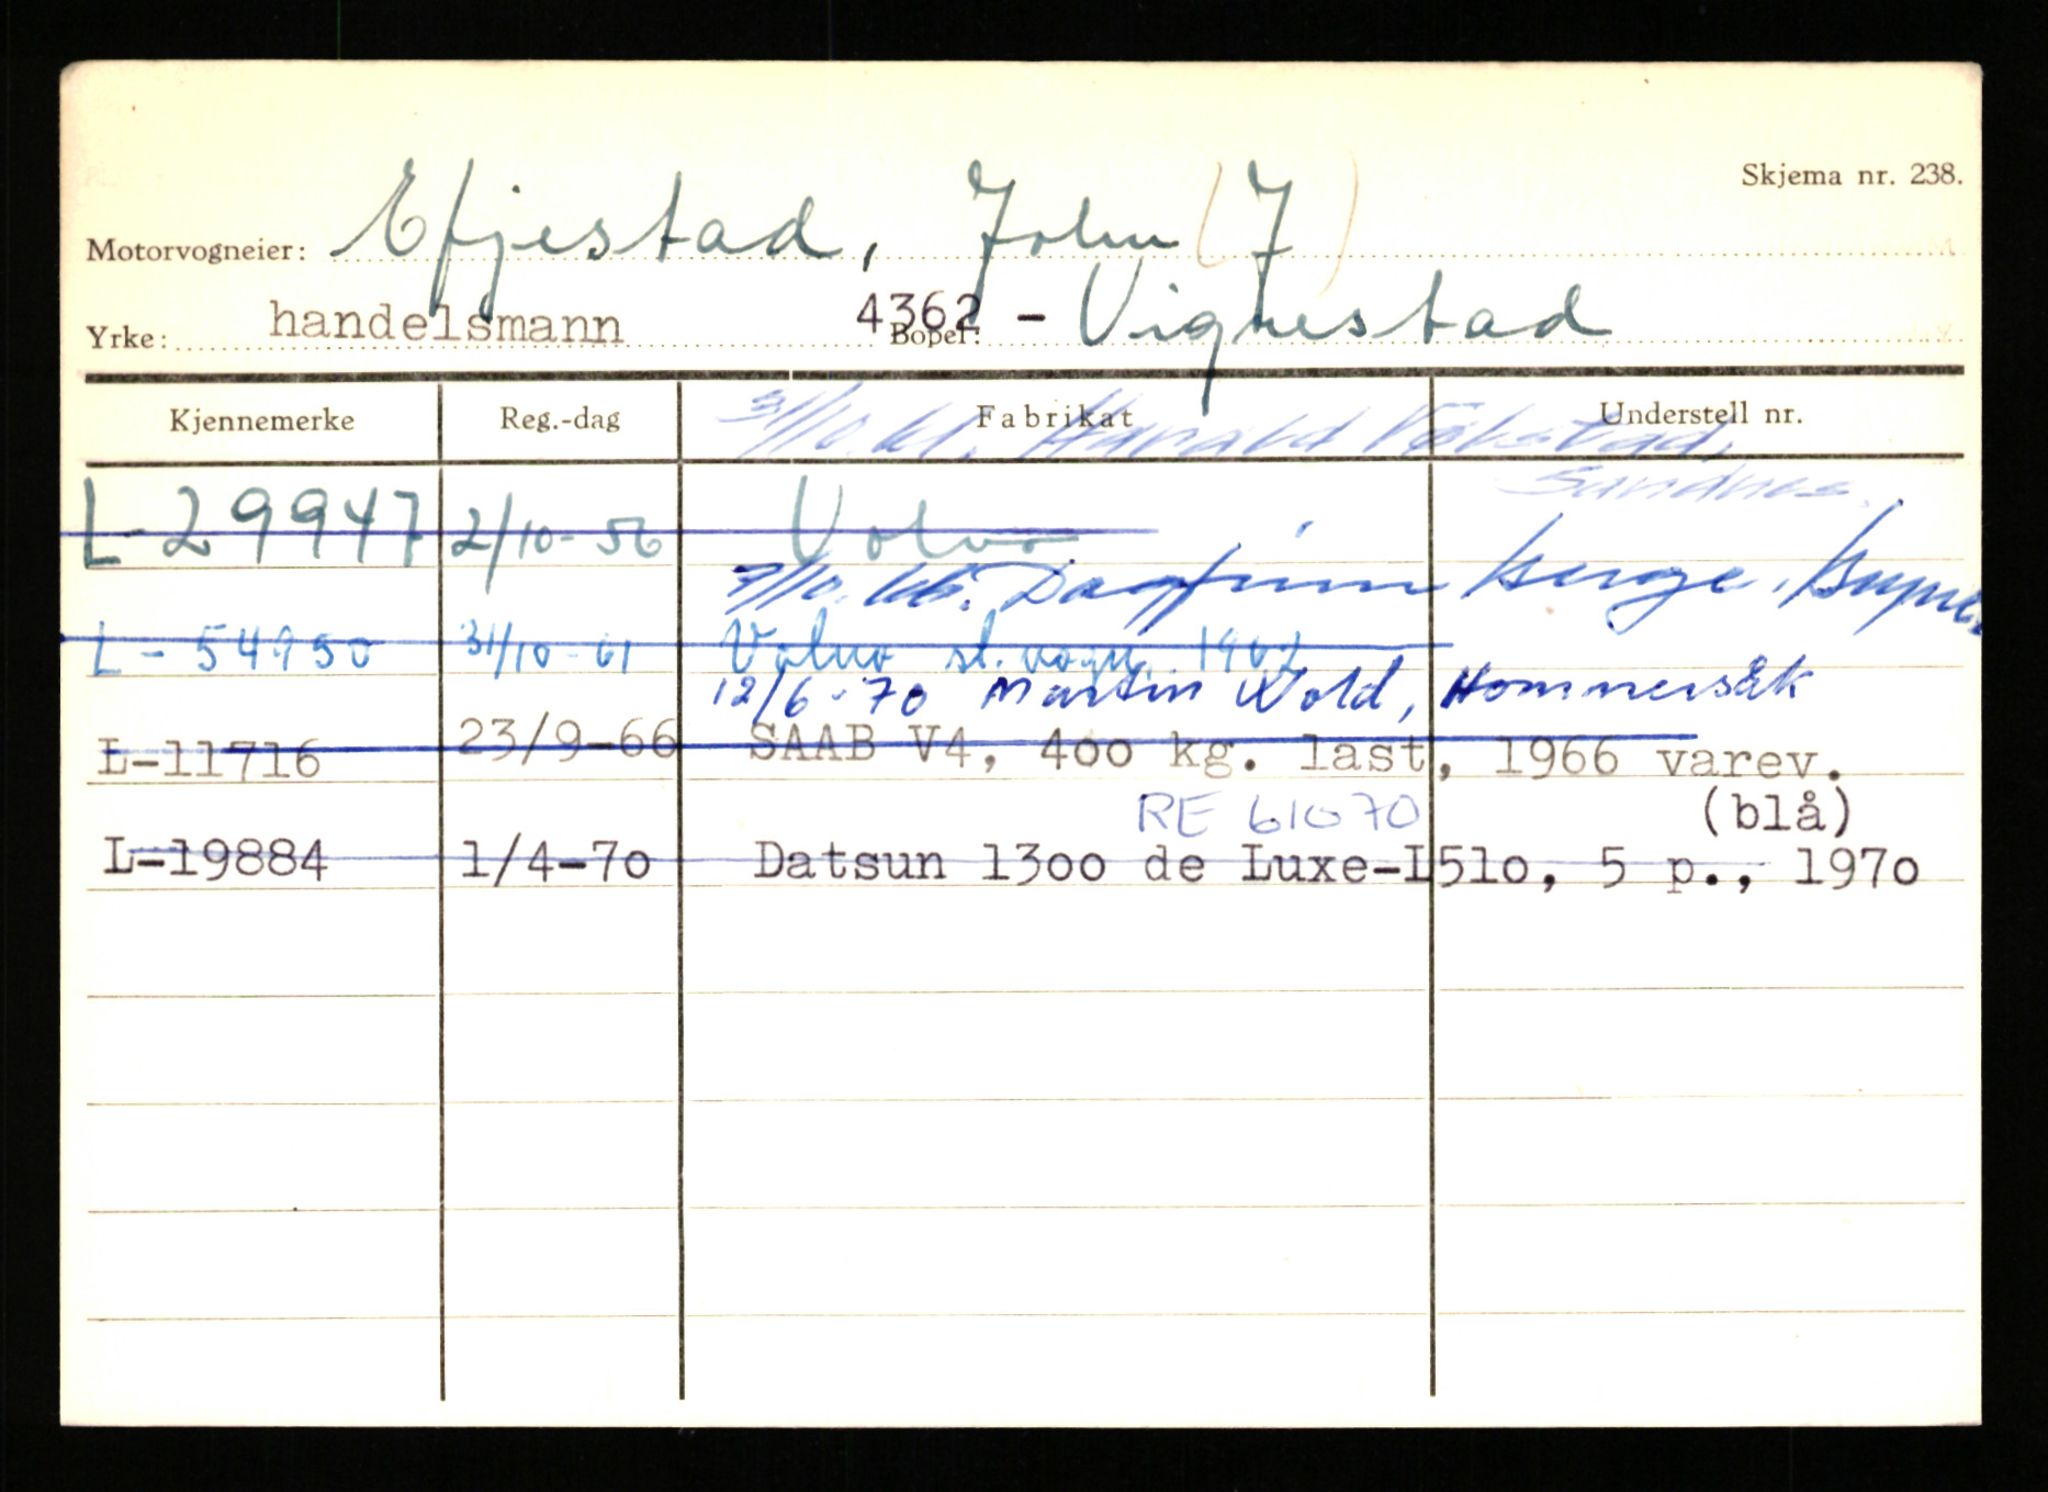 Skjema nr. 238.
Motorvogneier: Efjestad, John (7)
Yrke: handelsmann 4362 Bopel: - Vignestad
Kjennemerke Reg.-dag Fabrikat Understell nr.
31/10 61. Harald
Sandnes.
L-29947 2/10-56 Volvo
7/10. 66. Dagfinn Berge,
L-54950 31/10-61 Volvo st. vogn, 1962
12/6-70 Martin Wold, Hommersåk
L-11716 23/9-66 SAAB V4, 400 kg. last, 1966 varev.
RE 61070 (blå)
L-19884 1/4-70 Datsun 1300 de Luxe-L510, 5 p., 1970